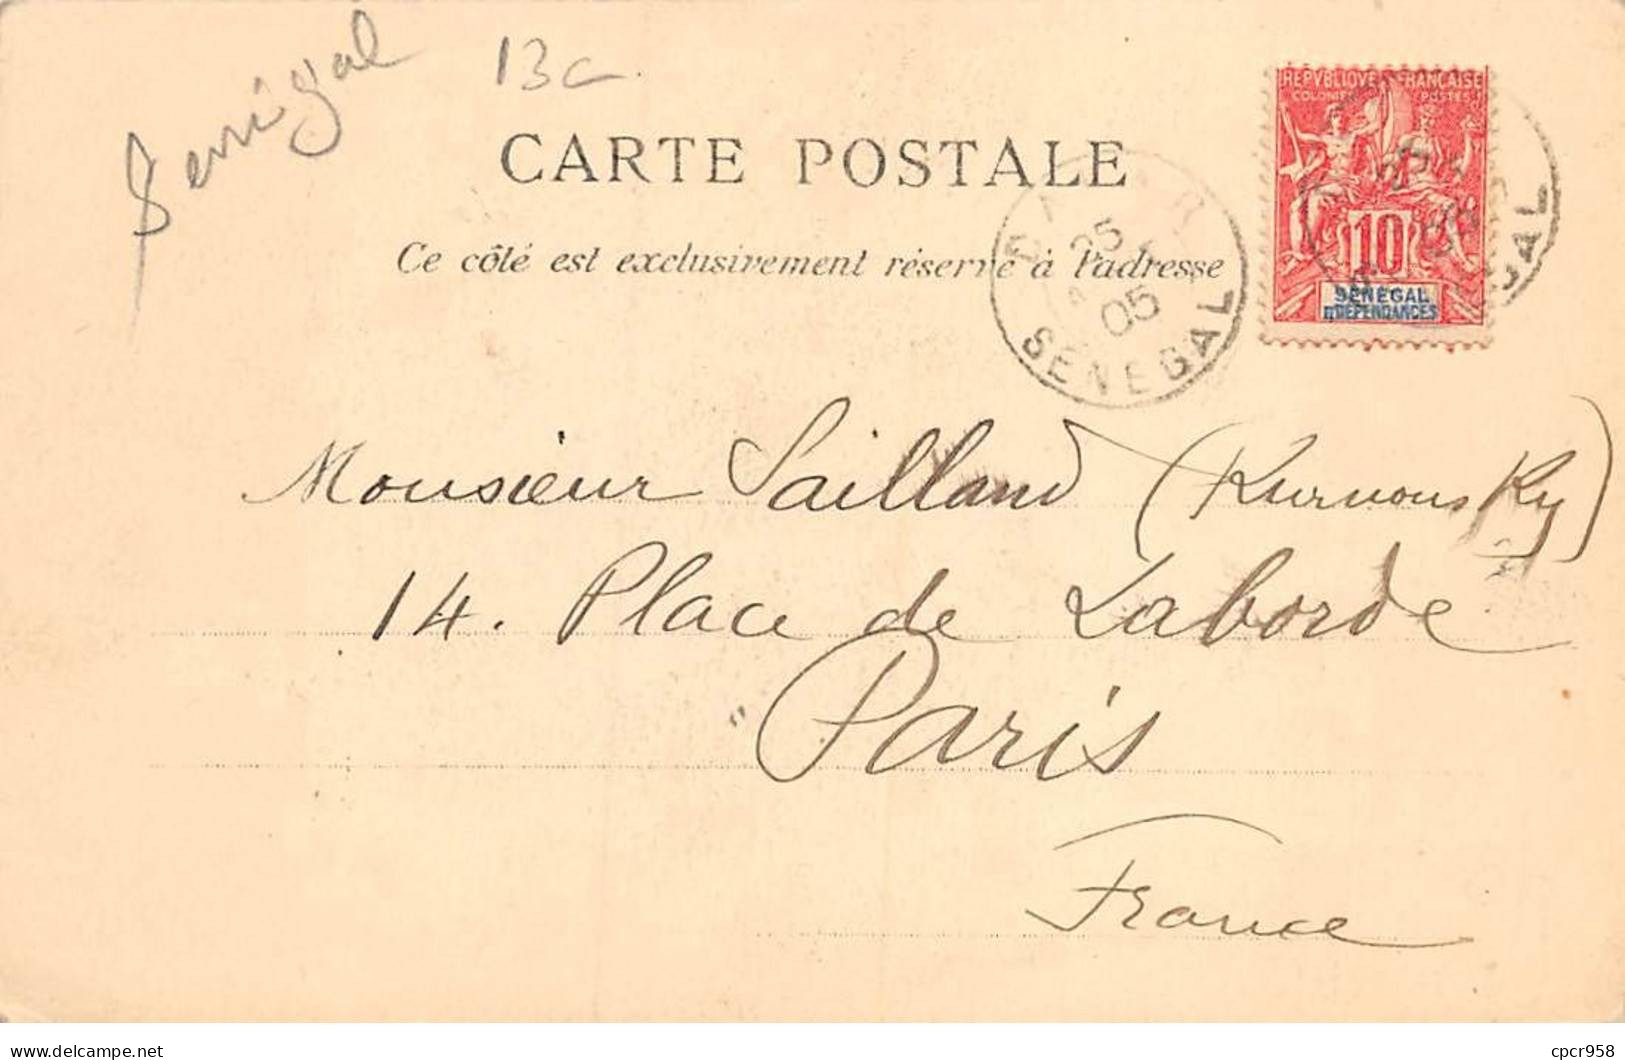 Senégal
13c
CARTE POSTALE
Ce côté est exclusivement réservé à l'adresse
DAKAR
25
05
SENEGAL
REPVBLIQVE FRANÇAISE
COLONIES POSTES
10
SÉNÉGAL
ET DÉPENDANCES
Monsieur Sailland (Kurnonsky)
14. Place de Laborde
Paris
France
delcampe.net
cpcr958